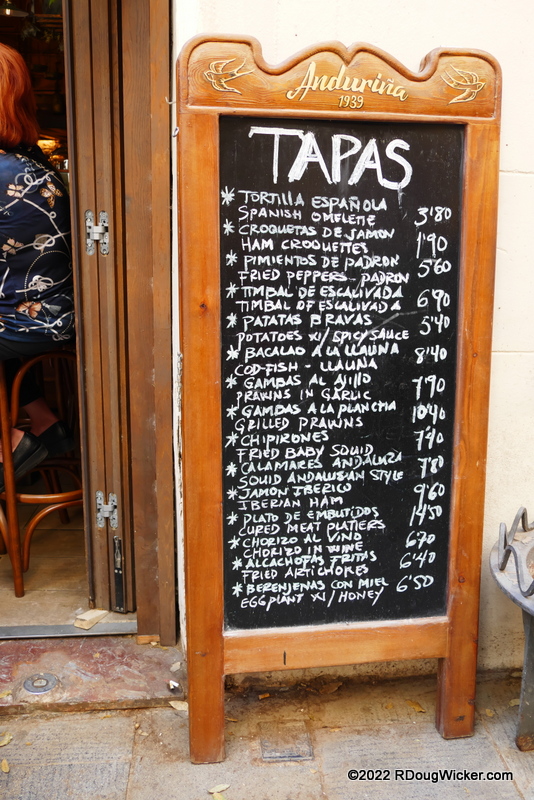 Anduriña
1939
TAPAS
* TORTILLA ESPAÑOLA
SPANISH OMELETTE 3'80
* CROQUETAS DE JAMON
HAM CROQUETTES 1'90
* PIMIENTOS DE PADRON
FRIED PEPPERS - PADRON 5'60
* TIMBAL DE ESCALIVADA
TIMBAL OF ESCALIVADA 6'90
* PATATAS BRAVAS
POTATOES W/ SPICY SAUCE 5'40
* BACALAO A LA LLAUNA
COD-FISH - LLAUNA 8'40
* GAMBAS AL AJILLO
PRAWNS IN GARLIC 7'90
* GAMBAS A LA PLANCHA
GRILLED PRAWNS 10'40
* CHIPIRONES
FRIED BABY SQUID 7'40
* CALAMARES ANDALUZA
SQUID ANDALUSIAN STYLE 7'80
* JAMON IBERICO
IBERIAN HAM 9'60
* PLATO DE EMBUTIDOS
CURED MEAT PLATTERS 14'50
* CHORIZO AL VINO
CHORIZO IN WINE 6'70
* ALCACHOFAS FRITAS
FRIED ARTICHOKES 6'40
* BERENJENAS CON MIEL
EGGPLANT W/ HONEY 6'50
©2022 RDougWicker.com